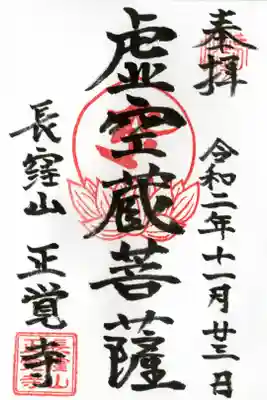 奉拝
令和二年十一月廿三日
虚空蔵菩薩
長窪山
正覚寺